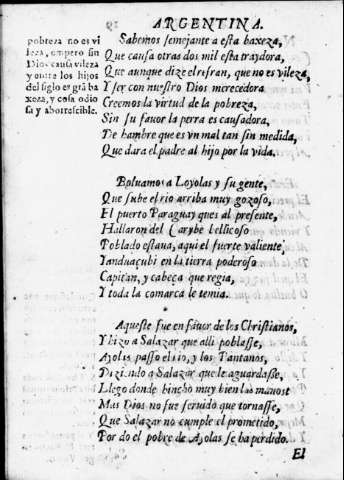 ARGENTINA.
pobreza no es vi
leza, empero sin
Dios causa vileza
y entre los hijos
del siglo es grã ba
xeza, y cosa odio
sa y aborrescible.
Sabemos semejante a esta baxeza,
Que causa otras dos mil esta traydora,
Que aunque dize el refran, que no es vileza,
Y ser con nuestro Dios merecedora
Creemos la virtud de la pobreza,
Sin su favor la perra es causadora,
De hambre que es vn mal tan sin medida,
Que dara el padre al hijo por la vida.
Boluamos a Loyolas y su gente,
Que sube el rio arriba muy gozoso,
El puerto Paraguay ques al presente,
Hallaron del Carybe bellicoso
Poblado estaua, aqui el fuerte valiente
Yanduaçubi en la tierra poderoso
Capitan, y cabeça que regia,
Y toda la comarca le temia.
Aqueste fue en fauor de los Christianos,
Y hizo a Salazar que alli poblasse,
Ayolas passo el rio, y los Pantanos,
Diziendo a Salazar que le aguardasse,
Llego donde hincho muy bien las manos
Mas Dios no fue seruido que tornasse,
Que Salazar no cumple el prometido,
Por do el pobre de Ayolas se ha perdido.
El